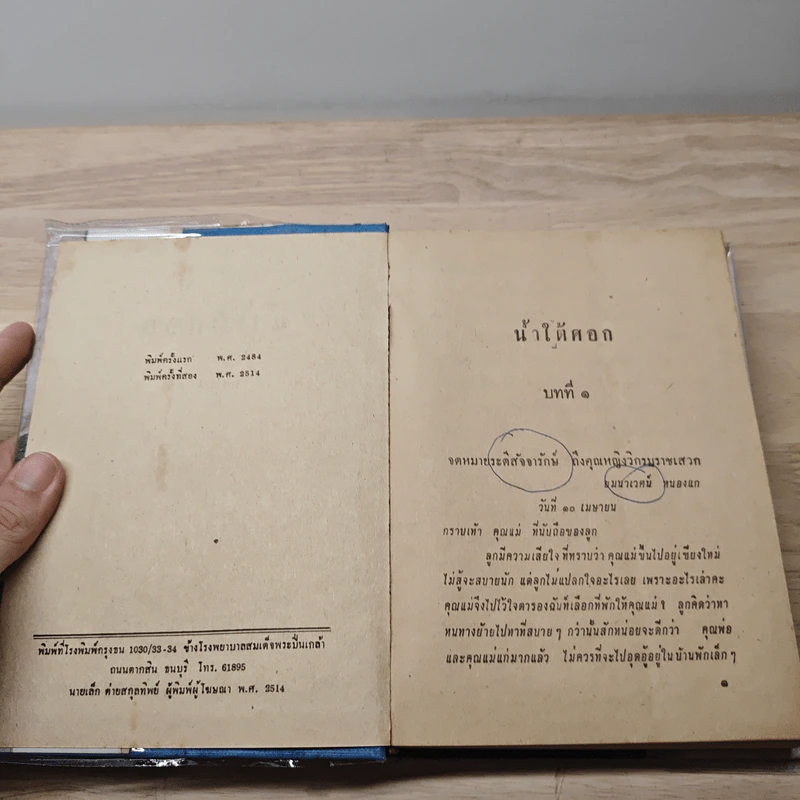 พิมพ์ครั้งแรก พ.ศ. 2484
พิมพ์ครั้งที่สอง พ.ศ. 2514
พิมพ์ที่โรงพิมพ์กรุงธน 1030/33-34 ข้างโรงพยาบาลสมเด็จพระปิ่นเกล้า
ถนนตากสิน ธนบุรี โทร. 61895
นายเล็ก ค่ายสกุลทิพย์ ผู้พิมพ์ผู้โฆษณา พ.ศ. 2514
น้ำใต้ศอก
บทที่ ๑
จดหมายระตีสัจจารักษ์ ถึงคุณหญิงวิกรมราชเสวก
ยมนาเวศน์ หนองแก
วันที่ ๑๐ เมษายน
กราบเท้า คุณแม่ ที่นับถือของลูก
ลูกมีความเสียใจ ที่ทราบว่า คุณแม่ขึ้นไปอยู่เชียงใหม่
ไม่สู้จะสบายนัก แต่ลูกไม่แปลกใจอะไรเลย เพราะอะไรเล่าคะ
คุณแม่จึงไปไว้ใจตารองฉันท์เลือกที่พักให้คุณแม่ ลูกคิดว่าหา
หนทางย้ายไปหาที่สบาย ๆ กว่านั้นสักหน่อยจะดีกว่า คุณพ่อ
และคุณแม่แก่มากแล้ว ไม่ควรที่จะไปอุดอู้อยู่ในบ้านพักเล็ก ๆ
๑